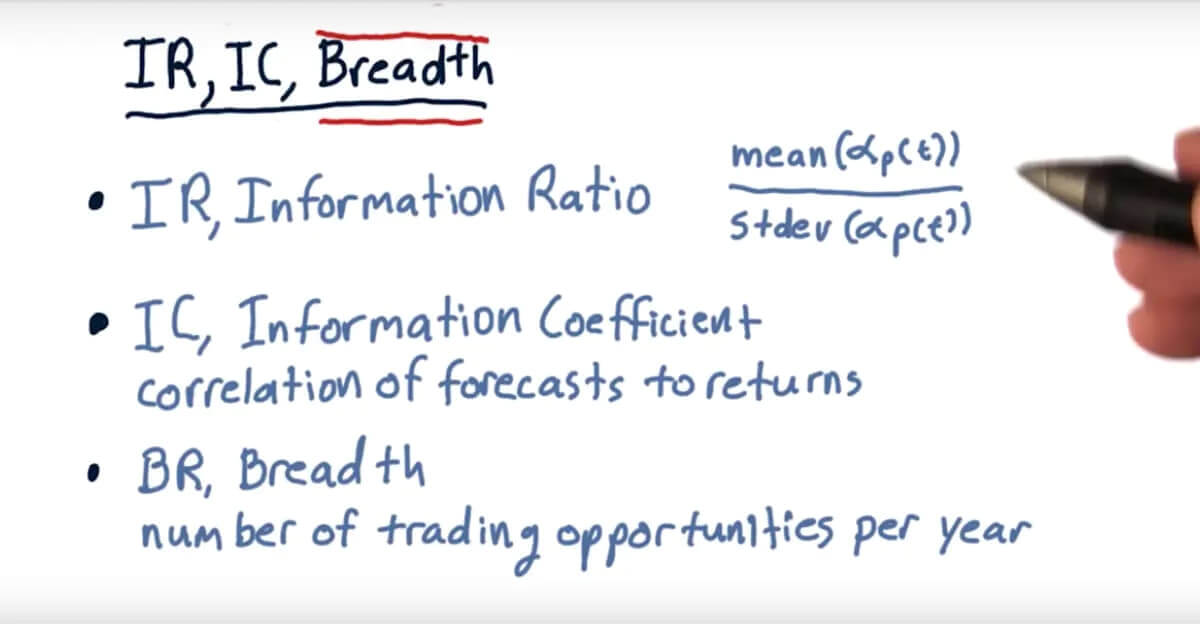 IR, IC, Breadth
• IR, Information Ratio
mean(αp(t))
stdev(αp(t))
• IC, Information Coefficient
correlation of forecasts to returns
• BR, Breadth
number of trading opportunities per year